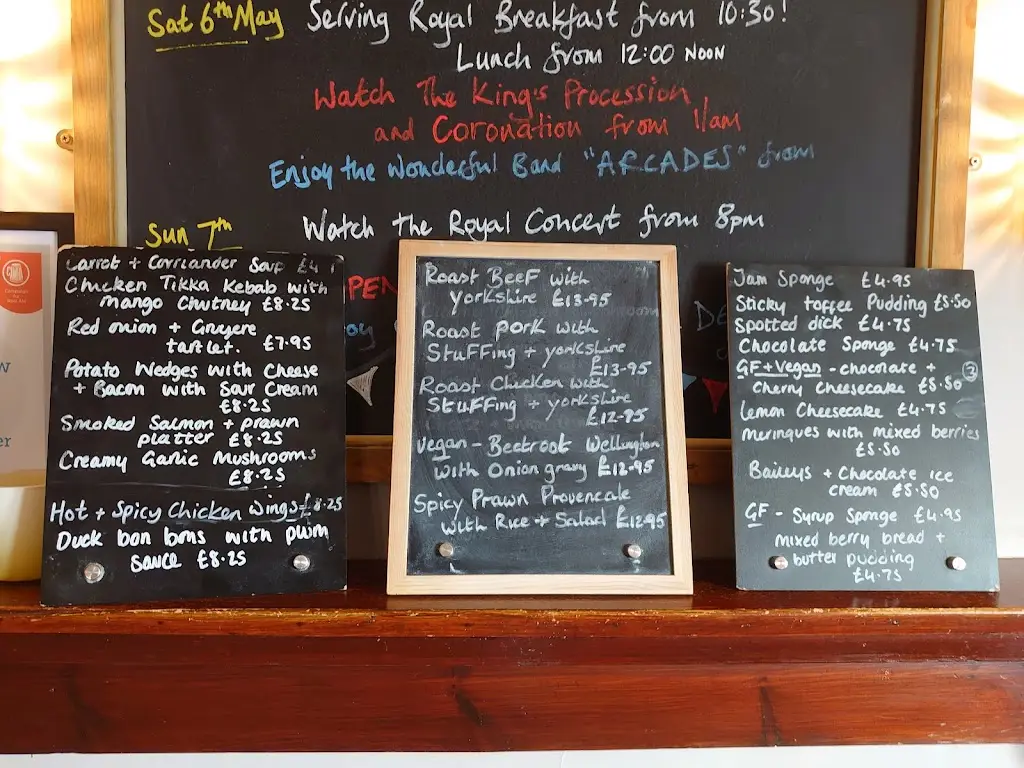 Sat 6th May Serving Royal Breakfast from 10:30!
Lunch from 12:00 NOON
Watch The King's Procession
and Coronation from 11am
Enjoy the Wonderful Band "ARCADES" from
Sun 7th Watch the Royal Concert from 8pm
Carrot + Corriander Soup
Chicken Tikka Kebab with
mango Chutney £8.25
Red onion + Gruyere
tartlet. £7.95
Potato Wedges with Cheese
+ Bacon with Sour Cream
£8.25
Smoked Salmon + prawn
platter £8.25
Creamy Garlic Mushrooms
£8.25
Hot + Spicy Chicken Wings £8.25
Duck bon bons with plum
sauce £8.25
Roast Beef with
yorkshire £13.95
Roast pork with
Stuffing + yorkshire
£13.95
Roast Chicken with
Stuffing + yorkshire
£12.95
Vegan - Beetroot Wellington
with Onion gravy £12.95
Spicy Prawn Provencale
with Rice + Salad £12.95
Jam Sponge £4.95
Sticky toffee Pudding £5.50
Spotted dick £4.75
Chocolate Sponge £4.75
GF + Vegan - chocolate +
Cherry Cheesecake £5.50
Lemon Cheesecake £4.75
meringues with mixed berries
£5.50
Baileys + Chocolate ice
cream £5.50
GF - Syrup Sponge £4.95
mixed berry bread +
butter pudding
£4.75